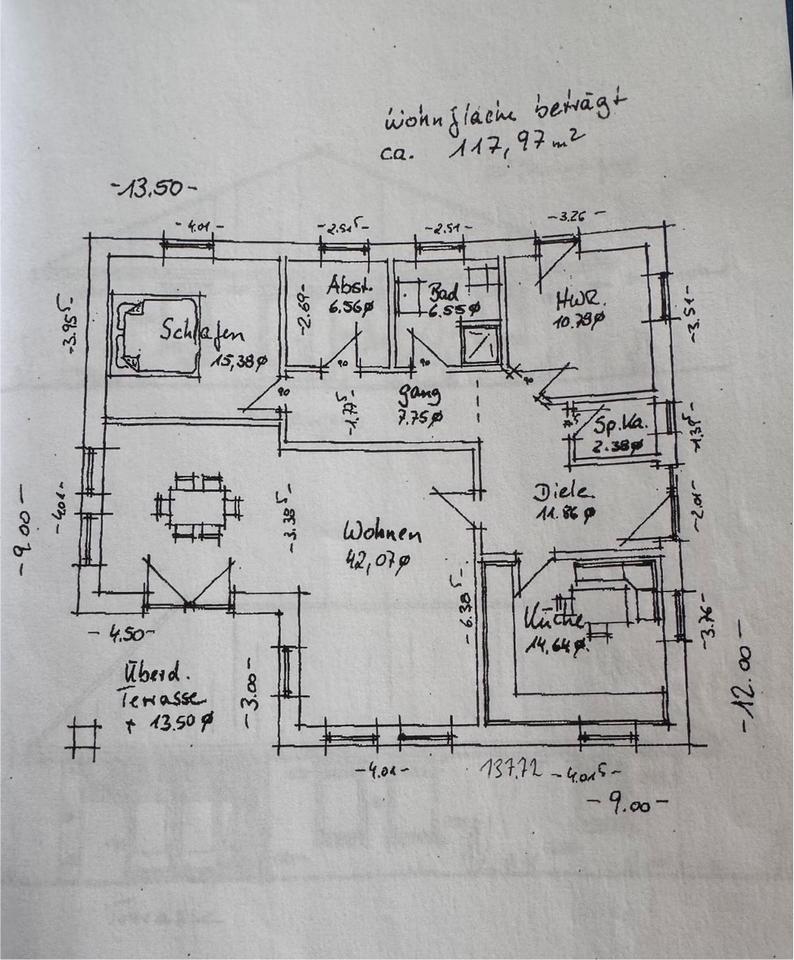 Wohnfläche beträgt
ca. 117,97 m²
-13.50-
-4.01-
-2.51⁵-
-2.51-
-3.26-
-3.95⁵-
Schlafen
15,38ø
-2.69-
Abst.
6.56ø
Bad
6.55ø
HWR.
10.78ø
-3.51-
90
90
90
90
-1.77⁵-
Gang
7.75ø
75
Sp.Ka.
2.38ø
-1.31⁵-
-9.00-
-4.01-
-3.38⁵-
Wohnen
42,07ø
Diele
11.86ø
-2.01-
-6.38⁵-
Küche
14,64ø
-3.76-
-4.50-
Überd.
Terrasse
+ 13.50ø
-3.00-
-12.00-
-4.01-
137.72
-4.01⁵-
-9.00-